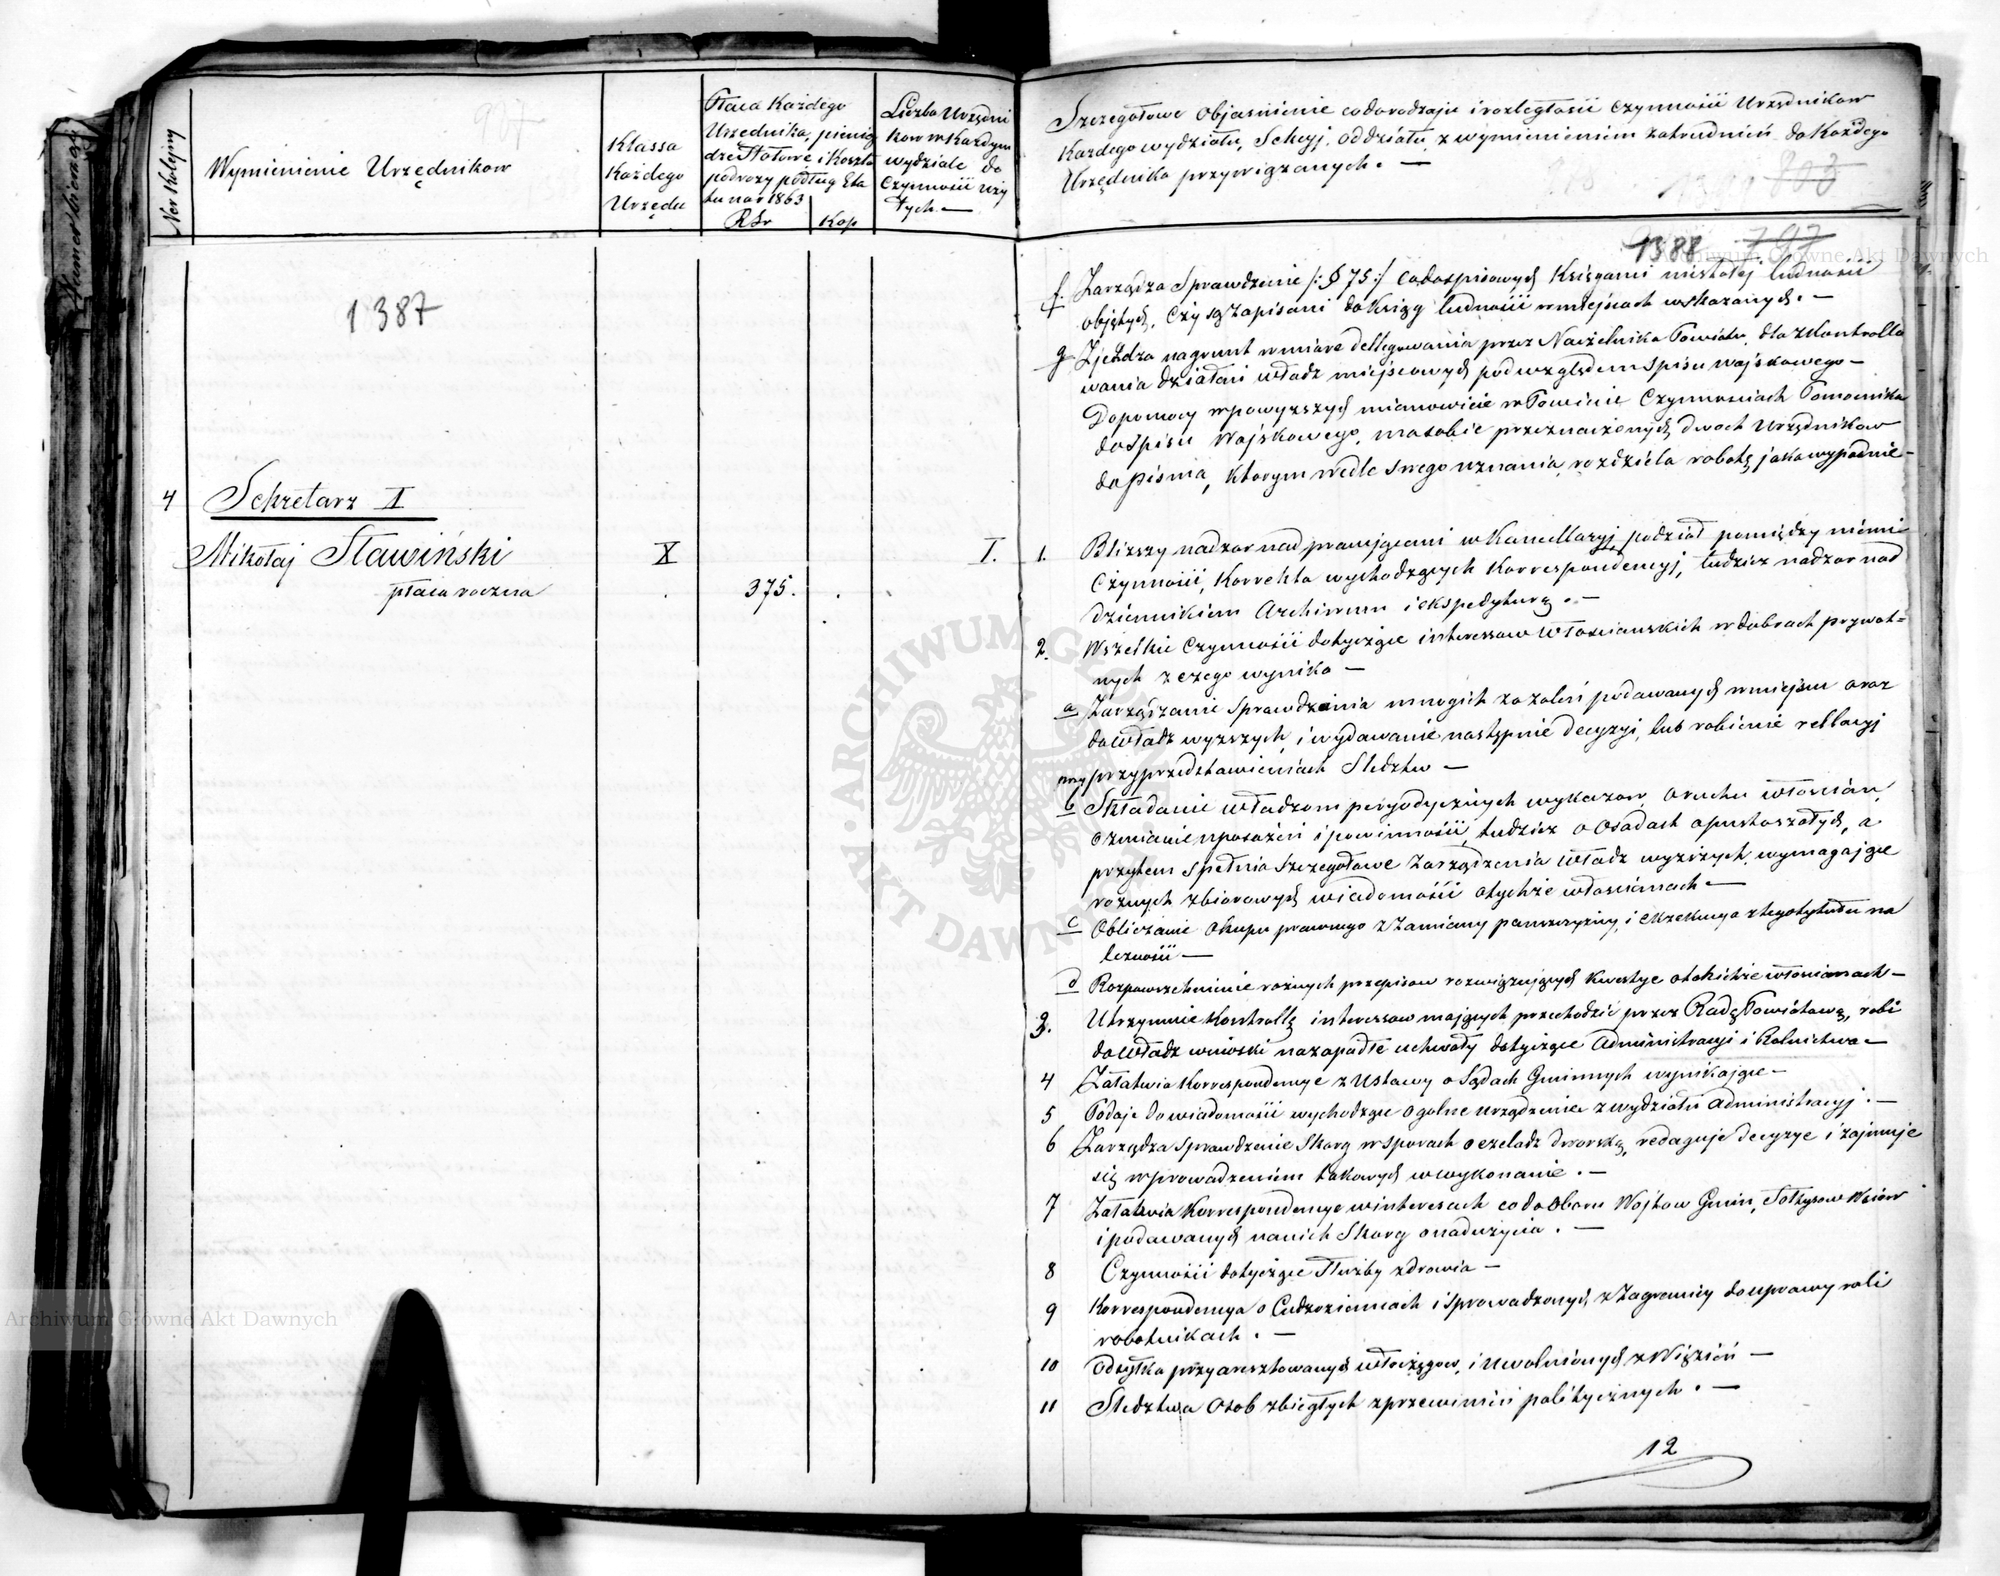 Ner Kolejny
Wymienienie Urzędnikow
Klassa
Każdego
Urzędu
Płaca Każdego
Urzędnika, pienią
dze Stołowe i Koszta
podrozy podług Eta
tu na r 1863
RSr
Kop
Liczba Urzędni
kow w Każdym
wydziale do
Czynności uży
tych. —
1387
4
Sekretarz I
Mikołaj Sławiński
X
I.
płaca roczna
375.
Szczegołowe Objasnienie co do rodzaju i rozległosci Czynnosci Urzędnikow
Każdego wydziału, Sekcyj, oddziału, z wymienieniem zatrudnień do Każdego
Urzędnika przywiązanych. —
803
1388 797
f. Zarządza Sprawdzenie /: § 75 :/ co do spisowych Księgami niestałej ludności
objętych, Czy są zapisani do Księgi ludności w miejscach wskazanych. —
g Zjeżdza na grunt w miarę dellegowania przez Naczelnika Powiatu, dla zkontrollo
wania działań władz miejscowych pod względem Spisu wojskowego —
Do pomocy w powyzszych mianowicie w Powiecie Czynnosciach Pomocnika
do Spisu Wojskowego, ma sobie przeznaczonych dwoch Urzędnikow
do pisma, Ktorym wedle swego uznania rozdziela robotę jaka wypadnie —
1. Blizszy nadzor nad pracującemi w Kancellaryj, podział pomiędzy niemi
Czynnosci, Korrekta wychodzących Korrespondencyj, tudzież nadzor nad
dziennikiem Archiwum i ekspedyturą. —
2. Wszelkie Czynności dotyczące interessow Włosciańskich w dobrach prywat=
nych z czego wynika —
a Zarządzanie Sprawdzenia mnogich zażaleń podawanych w miejscu oraz
do władz wyzszych, i wydawanie następnie decyzyi, lub robienie rellacyj
przy przedstawieniach Sledztw —
b Składanie władzom peryodycznych wykazow o ruchu włościan,
o zmianie uposażeń i powinnosci, tudzież o Osadach opustoszałych, a
przytem Spełnia Szczegołowe Zarządzenia Władz wyższych wymagające
rożnych zbiorowych wiadomości o tychże włościanach —
c Obliczanie Okupu prawnego z Zamiany panszczyzny, i exekucya z tego tytułu na
leżności —
d Rozpowszechnienie rożnych przepisow rozwiązujących Kwestye o takichże włościanach —
3. Utrzymuie Kontrollę interessow mających przechodzić przez Radę Powiatową, robi
do Władz wnioski na zapadłe uchwały dotyczące Administracyi i Rolnictwa —
4 Załatwia Korrespondencye z Ustawy o Sądach Gminnych wynikające —
5 Podaje do wiadomości wychodzące ogolne urządzenia z wydziału Administracyj. —
6 Zarządza Sprawdzenie Skarg w Sporach o czeladz dworską, redaguje decyzye i zajmuje
się wprowadzeniem takowych w wykonanie. —
7 Załatwia Korrespondencye w interesach co do Oboru Wojtow Gmin, Sołtysow Wsiow
i podawanych na nich Skarg o nadużycia. —
8 Czynności dotyczące Służby zdrowia —
9 Korrespondencya o Cudzoziemcach i Sprowadzonych z Zagranicy do uprawy roli
robotnikach. —
10 Odsyłka przyaresztowanych włoczęgow, i Uwolnionych z Więzień —
11 Sledztwa Osob zbiegłych z przewinień politycznych. —
12
ARCHIWUM GŁÓWNE AKT DAWNYCH
Archiwum Główne Akt Dawnych
Archiwum Główne Akt Dawnych